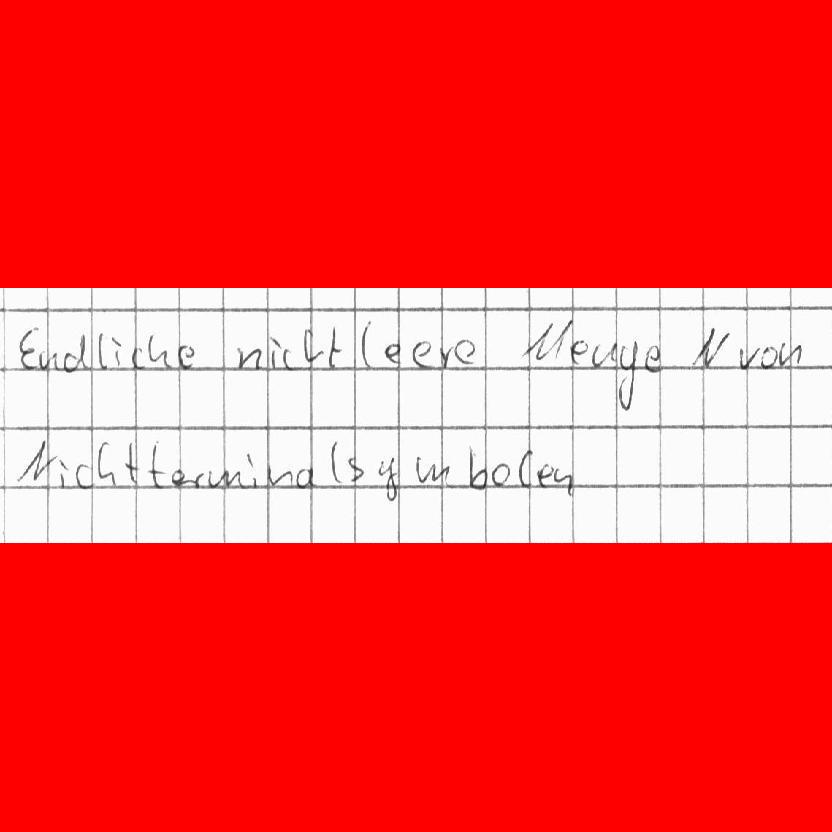 Endliche nicht leere Menge N von
Nichtterminalsymbolen